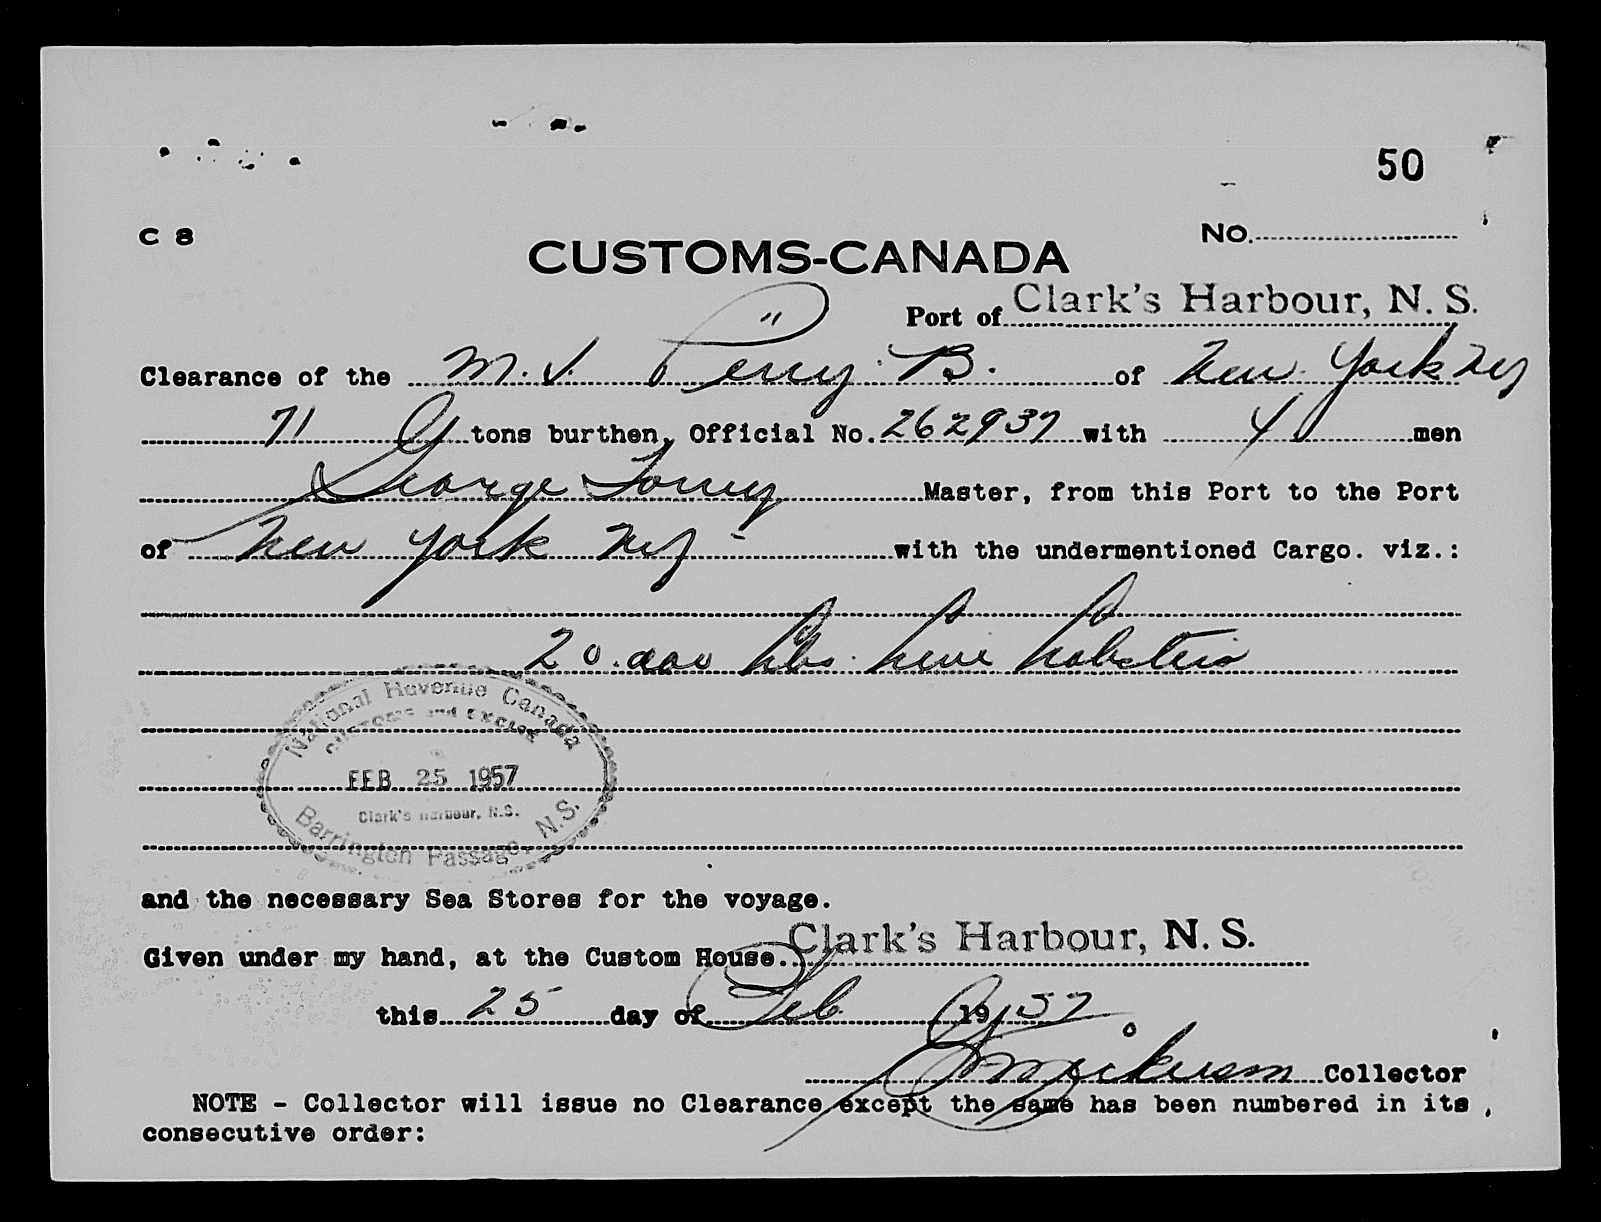 50
C 8
No.
CUSTOMS-CANADA
Port of Clark's Harbour, N. S.
Clearance of the M. V. "Perry B. of New York NY
71 tons burthen, Official No. 262937 with 4 men
George Torrey Master, from this Port to the Port
of New York NY - with the undermentioned Cargo. viz.:
20.000 Lbs. Live Lobsters
National Revenue Canada
CUSTOMS and EXCISE
FEB 25 1957
Clark's Harbour, N.S.
Barrington Passage, N.S.
and the necessary Sea Stores for the voyage.
Given under my hand, at the Custom House. Clark's Harbour, N. S.
this 25 day of Feb. 1957
Collector
NOTE - Collector will issue no Clearance except the same has been numbered in its
consecutive order: